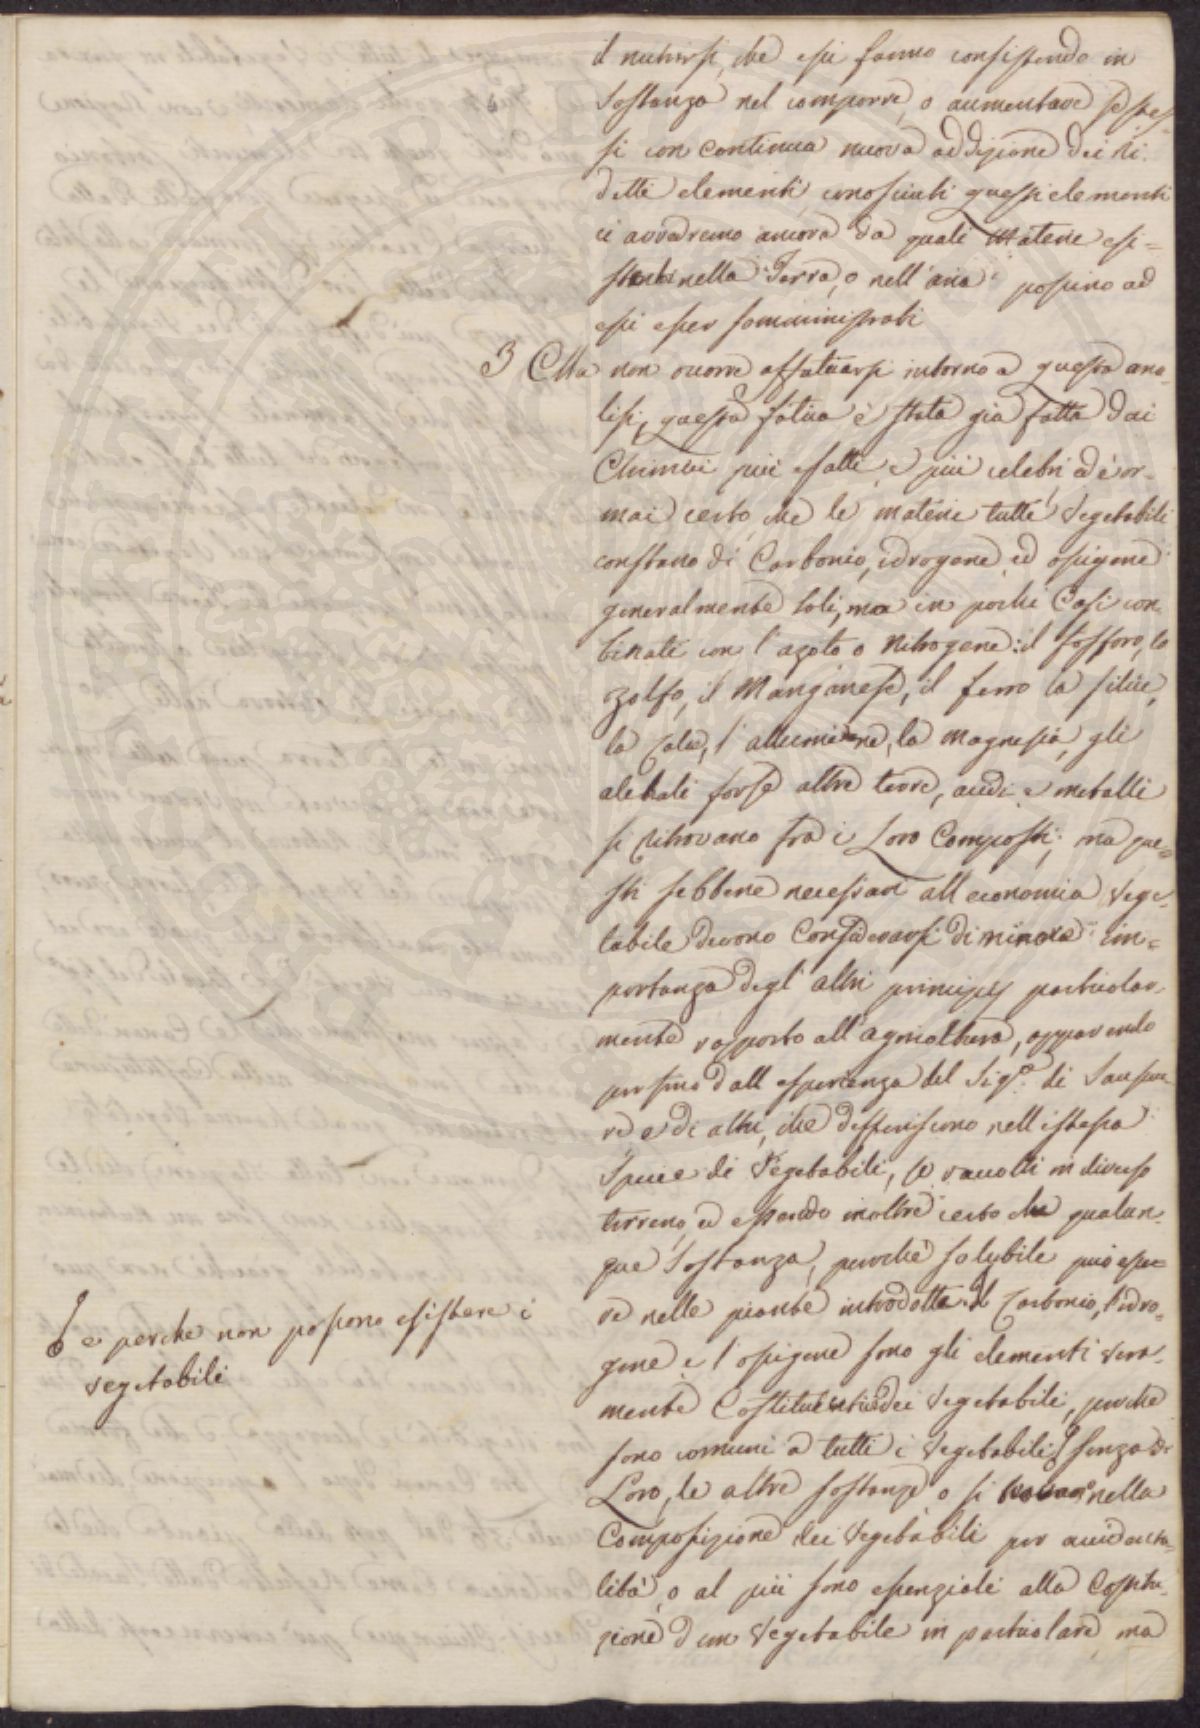 il nutrirsi, che essi fanno consistendo in
sostanza nel comporre, o aumentare se stes-
si con continua nuova addizione dei ri-
detti elementi, conosciuti questi elementi
ci avvedremo ancora da quali materie esi=
stenti nella Terra, o nell'aria possino ad
essi esser somministrati
3 Ma non ocorre affaticarsi intorno a questa ana-
lisi, questa fatica è stata già fatta dai
Chimici più esatti, e più celebri ed è or-
mai certo, che le materie tutte Vegetabili
constano di Carbonio, idrogene, ed ossigene
generalmente soli, ma in pochi Casi con-
binati con l'azoto o Nitrogene: il fosforo, lo
zolfo, il Manganese, il ferro la silice,
la Calce, l'allumine, la Magnesia, gli
alchali forse altre terre, acidi e metalli
si ritrovano fra i Loro Composti; ma que=
sti sebbene necessari all'economia Vege-
tabile devono Considerarsi di minore im=
portanza degl'altri principj particolar-
mente rapporto all'agricoltura, apparendo
persino dall'esperienza del Sigr. di Saussu-
re e di altri, che differiscono nell'istessa
Specie di Vegetabili, se raccolti in diverso
terreno, ed essendo inoltre certo che qualun-
que Sostanza, purchè solubile può esse=
re nelle piante introdotta. Il Carbonio, l'idro-
gene e l'ossigene sono gli elementi vera-
mente Costituenti dei Vegetabili, perchè
sono comuni a tutti i Vegetabili, senza di
Loro, le altre sostanze o si trovano nella
Composizione dei Vegetabili per accidenta-
lità, o al più sono essenziali alla Costitu-
zione d'un Vegetabile in particolare, ma
e perche non possono esistere i
vegetabili